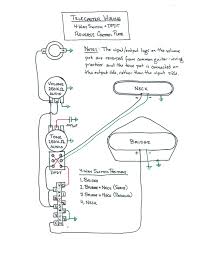 TELECASTER WIRING
4-WAY SWITCH + DPDT
REVERSE CONTROL PLATE
NOTES: The input/output lugs on the volume
pot are reversed from common guitar-wiring
practice and the tone pot is connected on
the output side, rather than the input side.
VOLUME
250K Ω
AUDIO
NECK
TONE
250K Ω
AUDIO
BRIDGE
DPDT
4-WAY SWITCH POSITIONS
1. BRIDGE
2. BRIDGE + NECK (SERIES)
3. BRIDGE + NECK (PARALLEL)
4. NECK